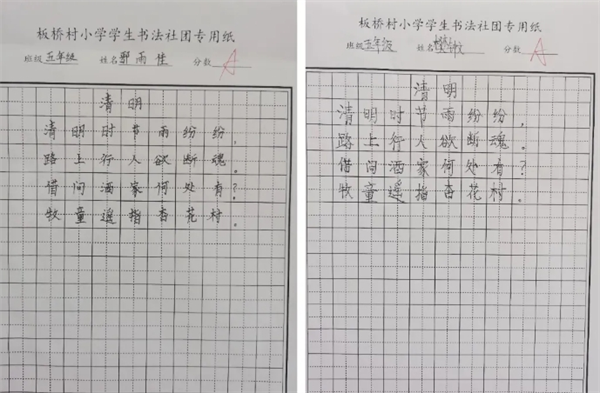 板桥村小学学生书法社团专用纸
班级 五年级 姓名 郭雨佳 分数 A
清明
清明时节雨纷纷,
路上行人欲断魂。
借问酒家何处有?
牧童遥指杏花村。
板桥村小学学生书法社团专用纸
班级 五年级 姓名 分数 A
清明
清明时节雨纷纷,
路上行人欲断魂。
借问酒家何处有?
牧童遥指杏花村.